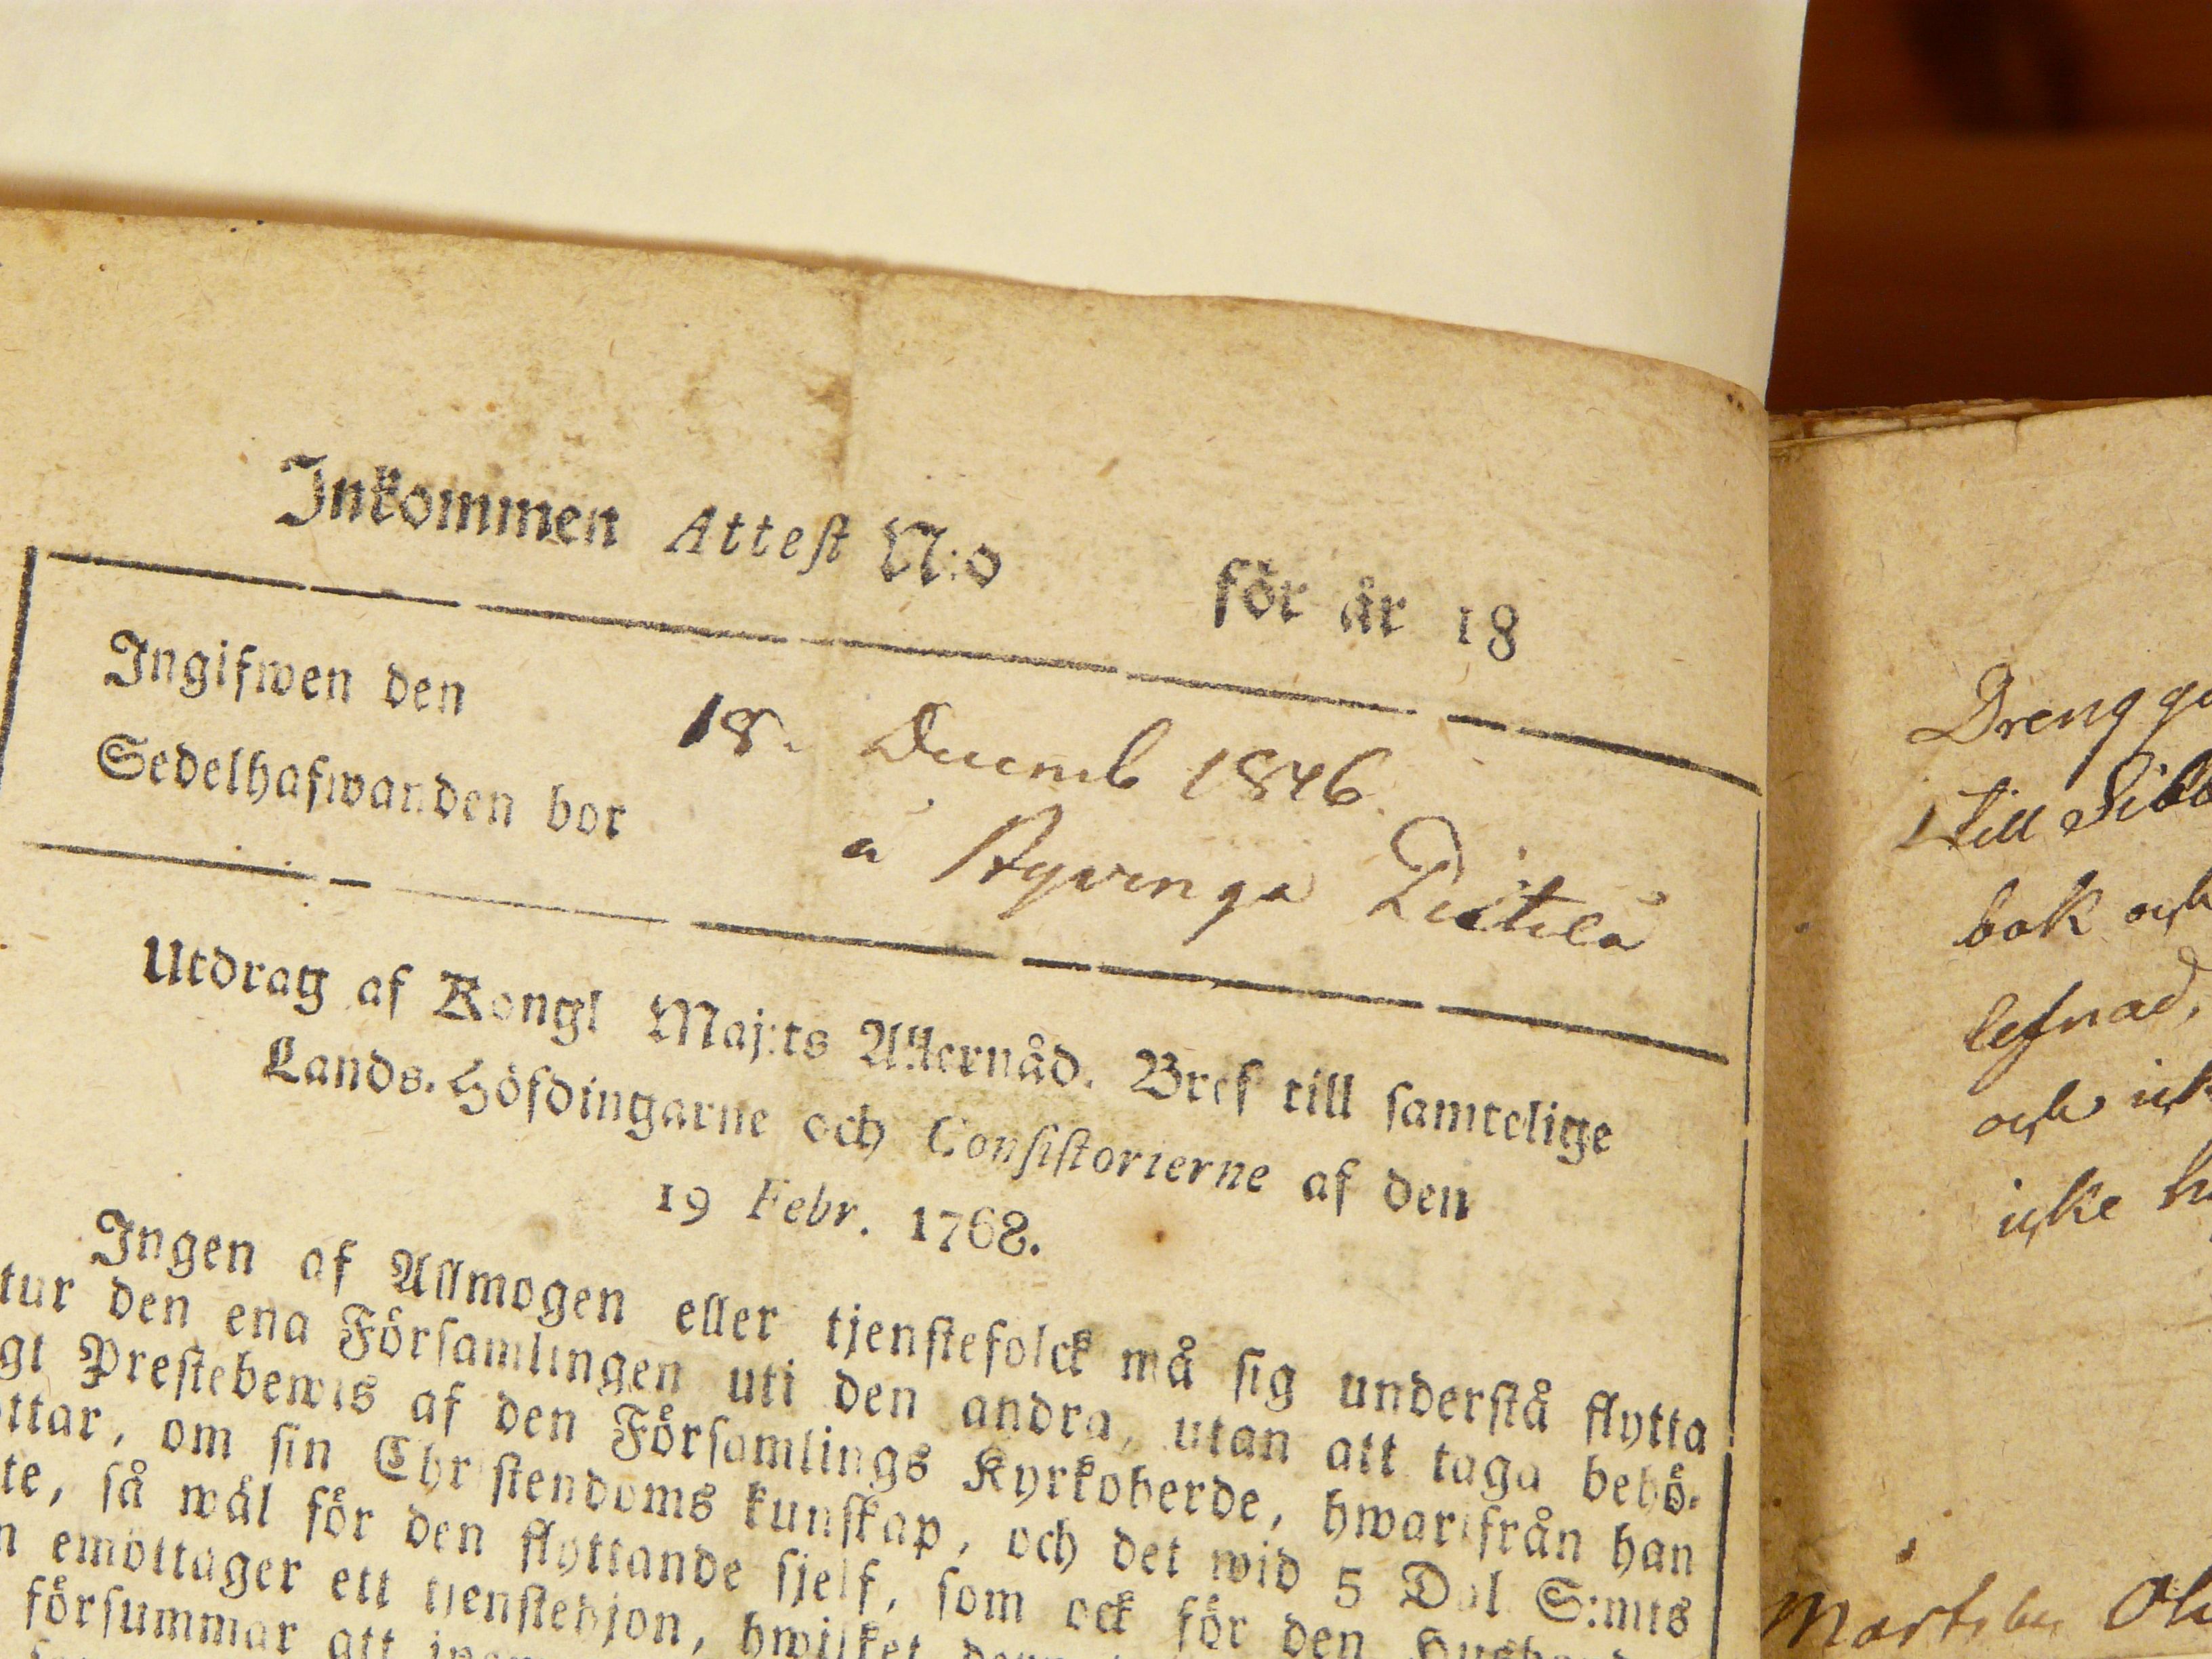 Inkommen Attest N:o för år 18
Ingifwen den 18. Decemb 1846.
Sedelhafwanden bor å
Utdrag af Kongl Maj:ts Allernåd. Bref till samtelige
Lands-Höfdingarne och Consistorierne af den
19 Febr. 1768.
Ingen af Allmogen eller tjenstefolck må sig understå flytta
tur den ena Församlingen uti den andra, utan att taga behö-
gt Prestebewis af den Församlings Kyrkoherde, hwarifrån han
ttar, om sin Christendoms kunskap, och det wid 5 Dal S:mts
te, så wäl för den flyttande sjelf, som ock för den
n emottager ett tjenstehjon, hwilket
försummar att
Dreng
till
bok och
lefnad,
och
icke